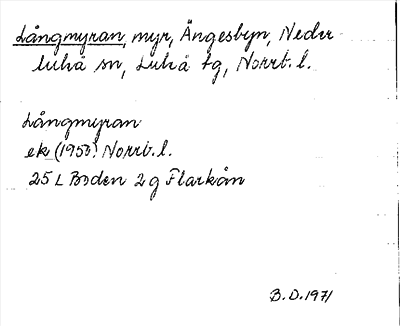 Långmyran, myr, Ängesbyn, Neder
luleå sn, Luleå tg, Norrb. l.
Långmyran
ek (1953) Norrb. l.
25 L Boden 2 g Flarkån
B. D. 1971